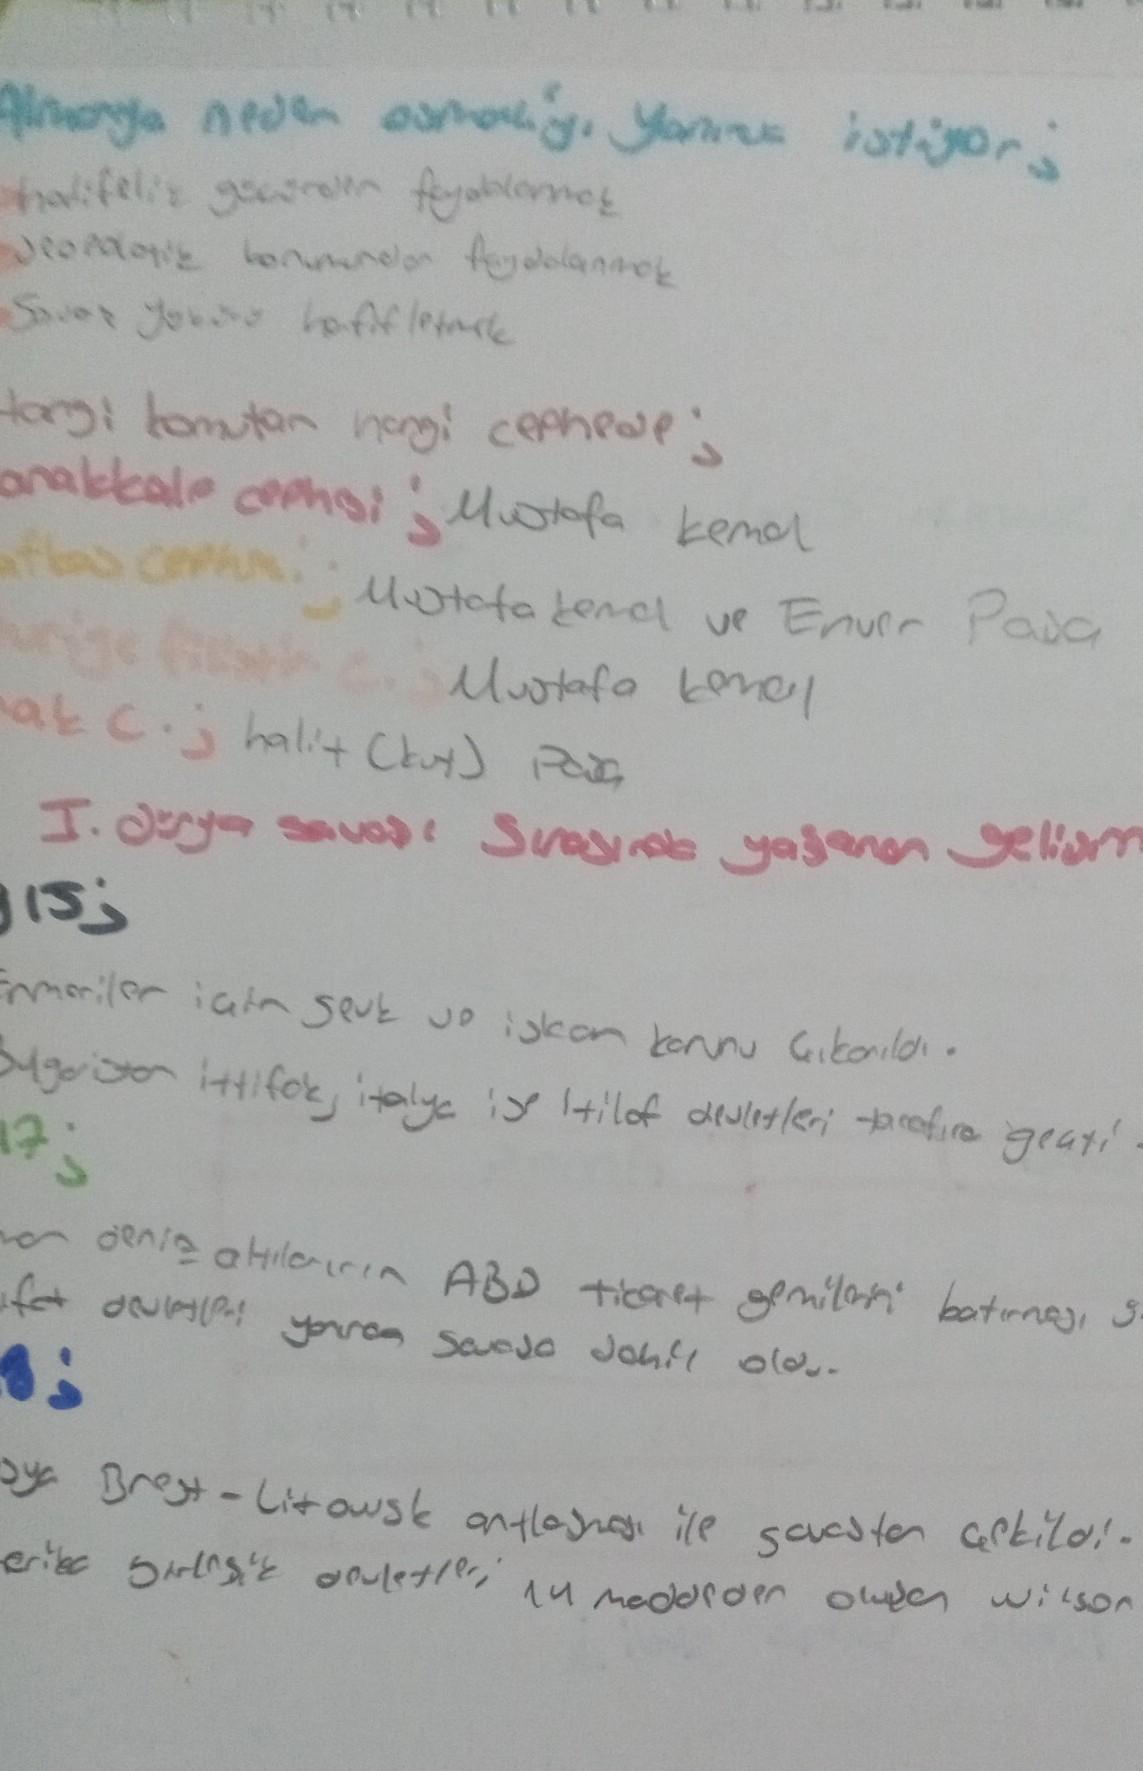 Almanya neden osmanlıyı yanına istiyor;
halifelik gücünden faydalanmak
Jeopolotik konumundan faydalanmak
Savaş yükünü hafifletmek
Hangi komutan hangi cephede;
anakkale cephesi; Mustafa kemal
afkas cephesi; Mustafa kemal ve Enver Paşa
uriye filistin C.; Mustafa kemal
rak C.; halit (kut) Paşa
I. dünya savaşı Sırasında yaşanan gelişm
915;
Ermeniler için sevk ve iskan kanunu çıkarıldı.
Bulgaristan ittifak, italya ise İtilaf devletleri tarafına geçti.
17;
man deniz altılarının ABD ticaret gemilerini batırması
devletleri yanında savaşa dahil oldu.
8;
sya Brest-Litowsk antlaşması ile savaştan çekildi.
erika birleşik devletleri 14 maddeden oluşan wilson